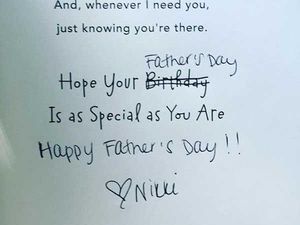 And, whenever I need you,
just knowing you're there.
Father's Day
Hope Your Birthday
Is as Special as You Are
Happy Father's Day !!
♡Nikki